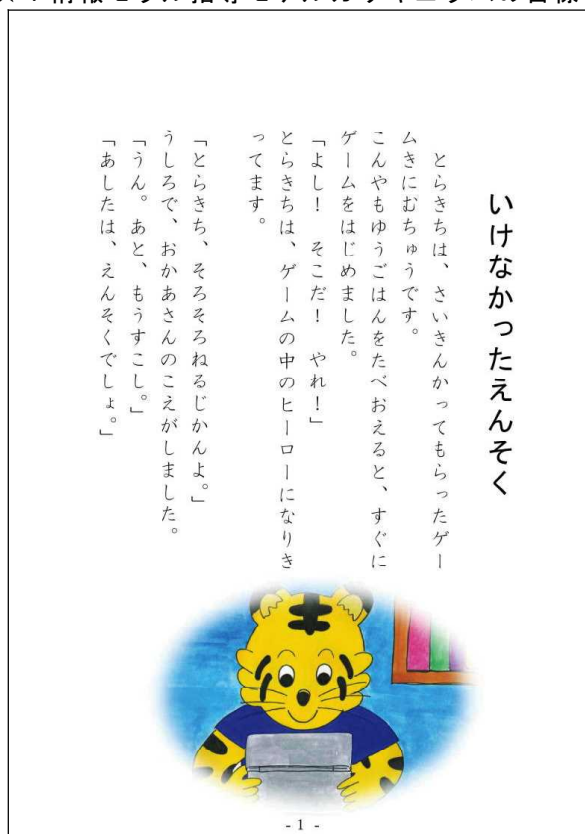 いけなかったえんそく
とらきちは、さいきんかってもらったゲー
ムきにむちゅうです。
こんやもゆうごはんをたべおえると、すぐに
ゲームをはじめました。
「よし！　そこだ！　やれ！」
とらきちは、ゲームの中のヒーローになりき
ってます。
「とらきち、そろそろねるじかんよ。」
うしろで、おかあさんのこえがしました。
「うん。あと、もうすこし。」
「あしたは、えんそくでしょ。」
- 1 -